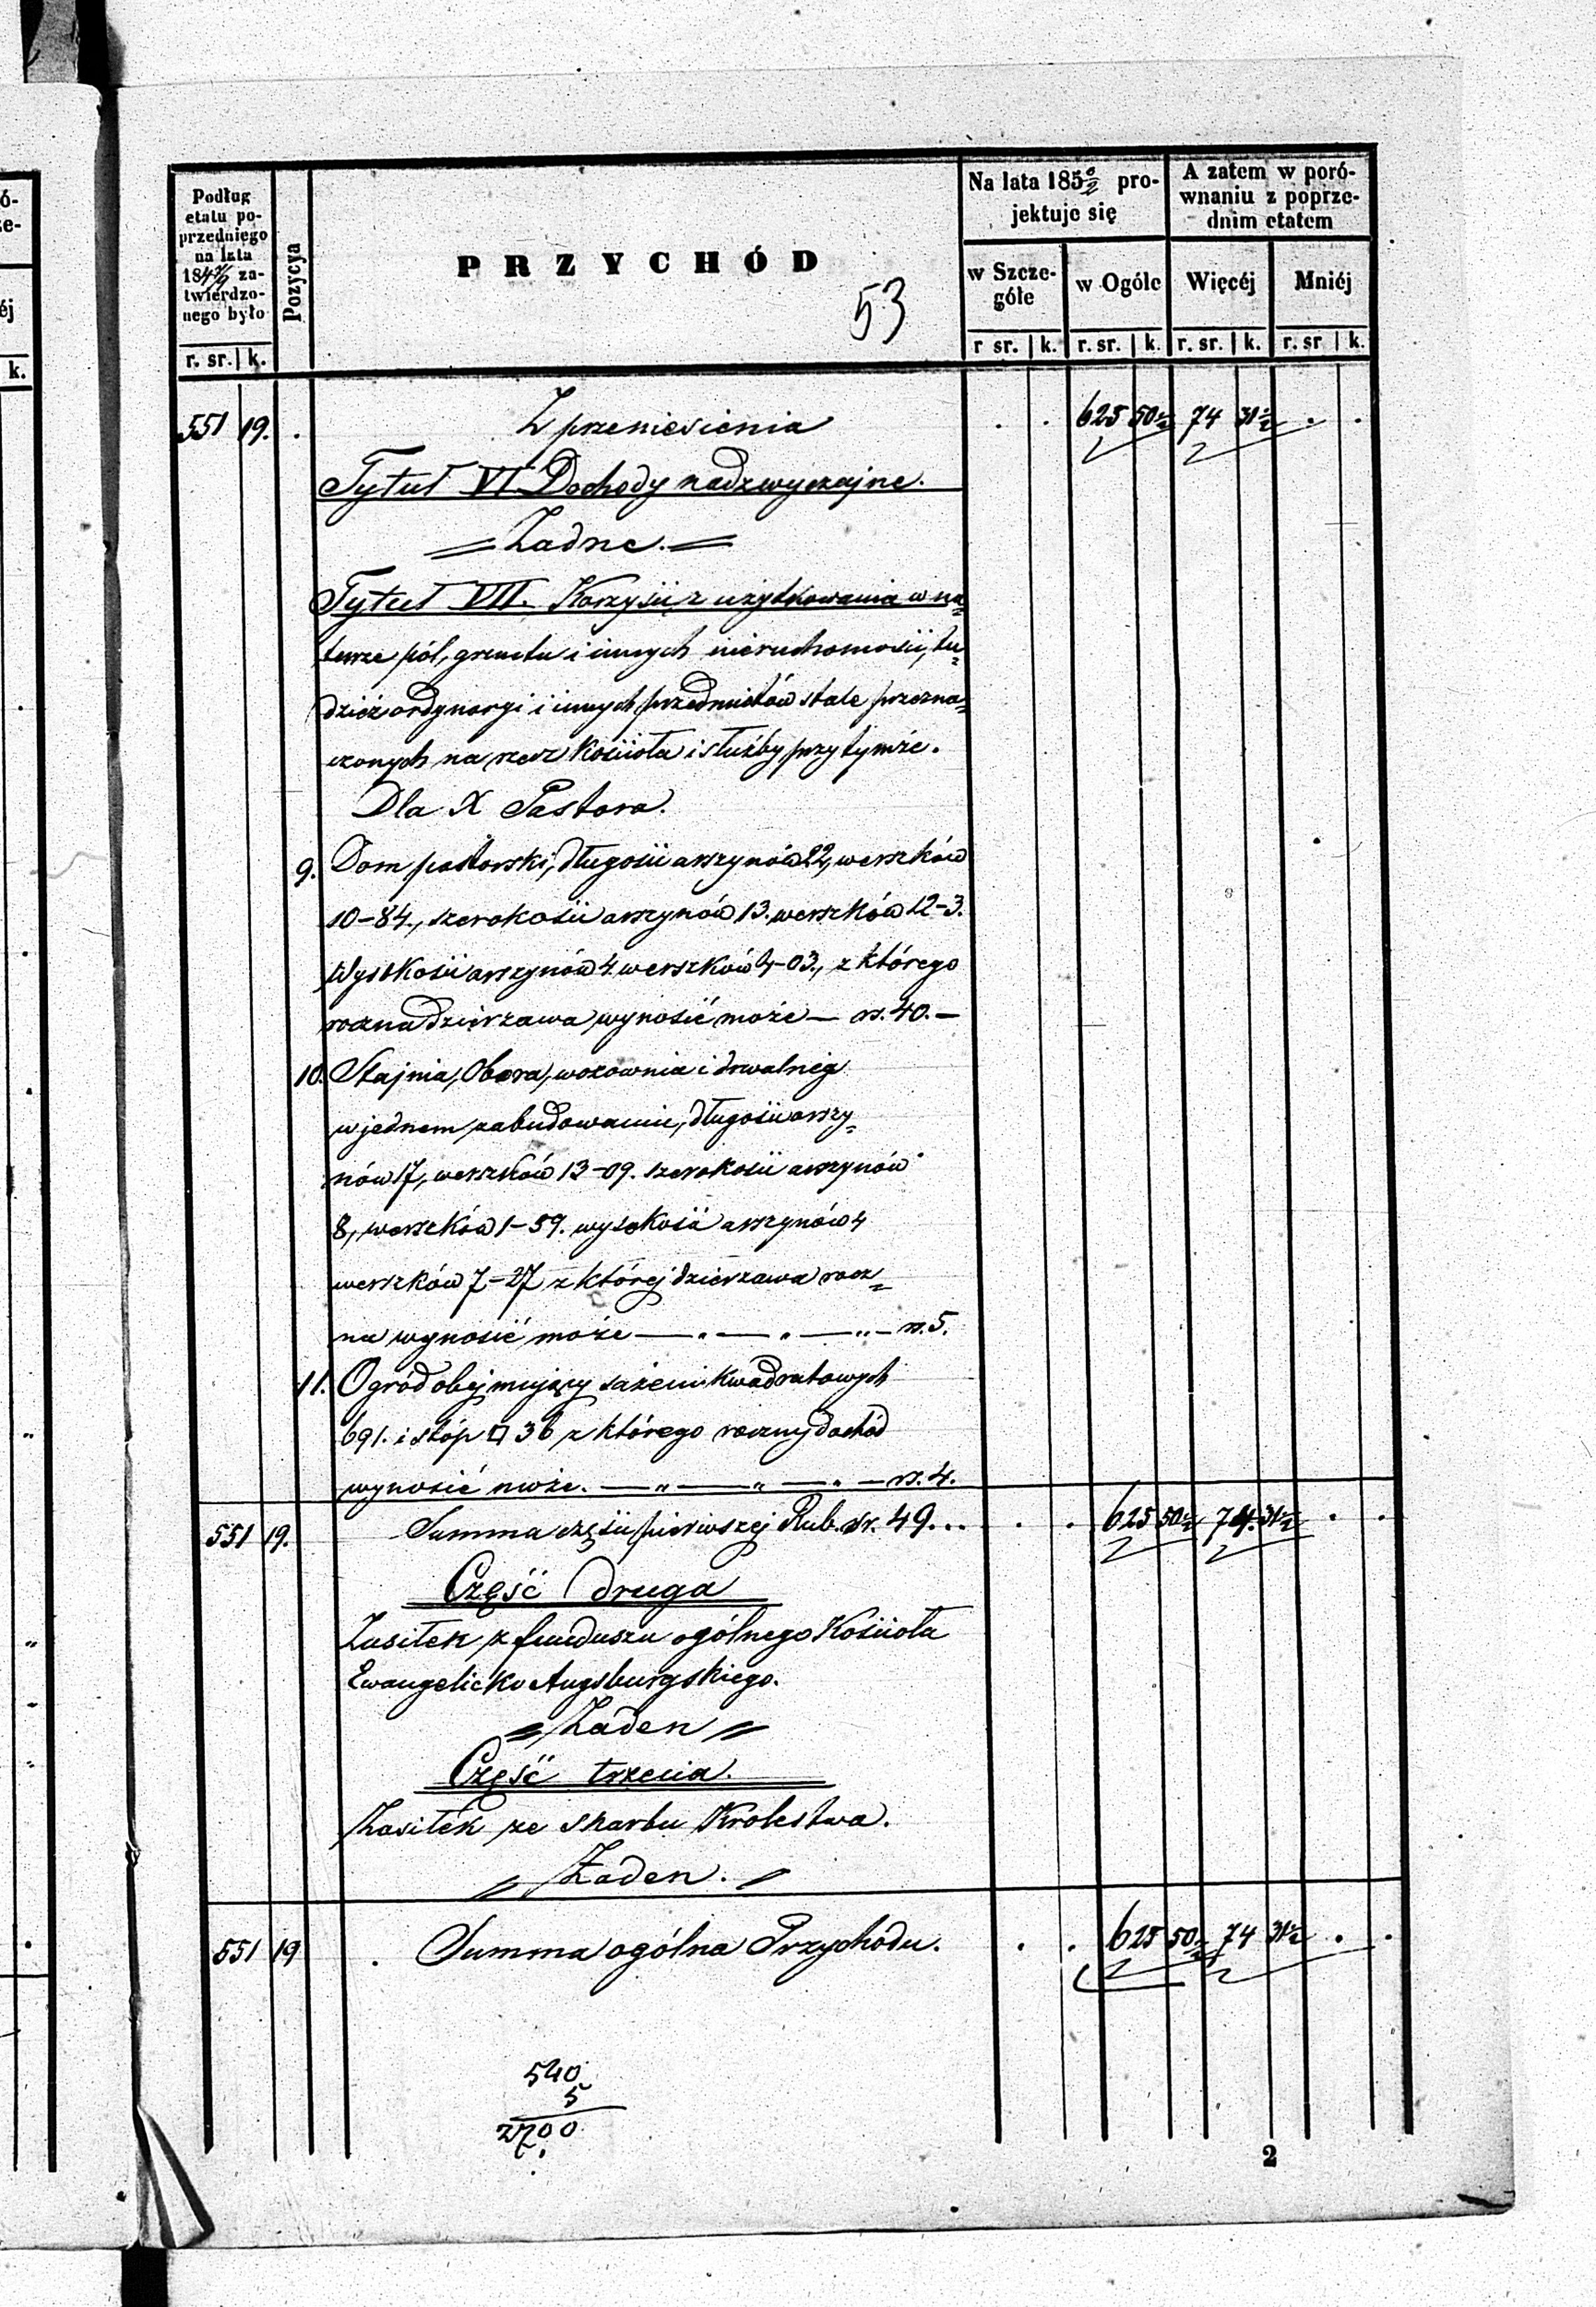 Podług
etatu po-
przedniego
na lata
184 7/9 za-
twierdzo-
nego było
r. sr. k.
Pozycya
PRZYCHÓD
53
Na lata 185 0/2 pro-
jektuje się
w Szcze-
góle
w Ogóle
r sr. k. r. sr. k.
A zatem w poró-
wnaniu z poprze-
dnim etatem
Więcéj Mniéj
r. sr. k. r. sr k.
551 19. . Z przeniesienia . . 625 50½ 74 31½ . .
Tytuł VI. Dochody nadzwyczajne.
= Żadne. =
Tytuł VII. Korzyści z użytkowania w na=
turze pól, gruntu i innych nieruchomości, tu=
dzież ordynaryi i innych przedmiotów stale przezna=
czonych na rzecz Kościoła i służby przy tymże.
Dla X Pastora.
9. Dom pastorski, długości arszynów 22, werszków
10-84., szerokości arszynów 13. werszków 12-3.
Wysokości arszynów 4 werszków 4-03., z którego
roczna dzierzawa wynosić może — rs. 40. —
10. Stajnia, Obora, wozownia i drwalnia
w jednem zabudowaniu, długości arszy=
nów 17, werszków 13-09. szerokości arszynów
8, werszków 1-59. wysokość arszynów 4
werszków 7-27 z której dzierzawa rocz=
na wynosić może — „ — „ — „ — rs. 5.
11. Ogród obejmujący sażeni Kwadratowych
691. i stóp □ 36 z którego roczny dochód
wynosić może. — „ — „ — „ — rs. 4.
551 19. Summa części pierwszej Rub. sr. 49... . . 625 50½ 74. 31½ . .
Część druga
Zasiłek z funduszu ogólnego Kościoła
Ewangelicko Augsburgskiego.
= Żaden =
Część trzecia.
Zasiłek ze skarbu Krolestwa.
= Żaden. =
551 19 . Summa ogólna Przychodu. . . 625 50½ 74 31½ . .
540
5
2700
2